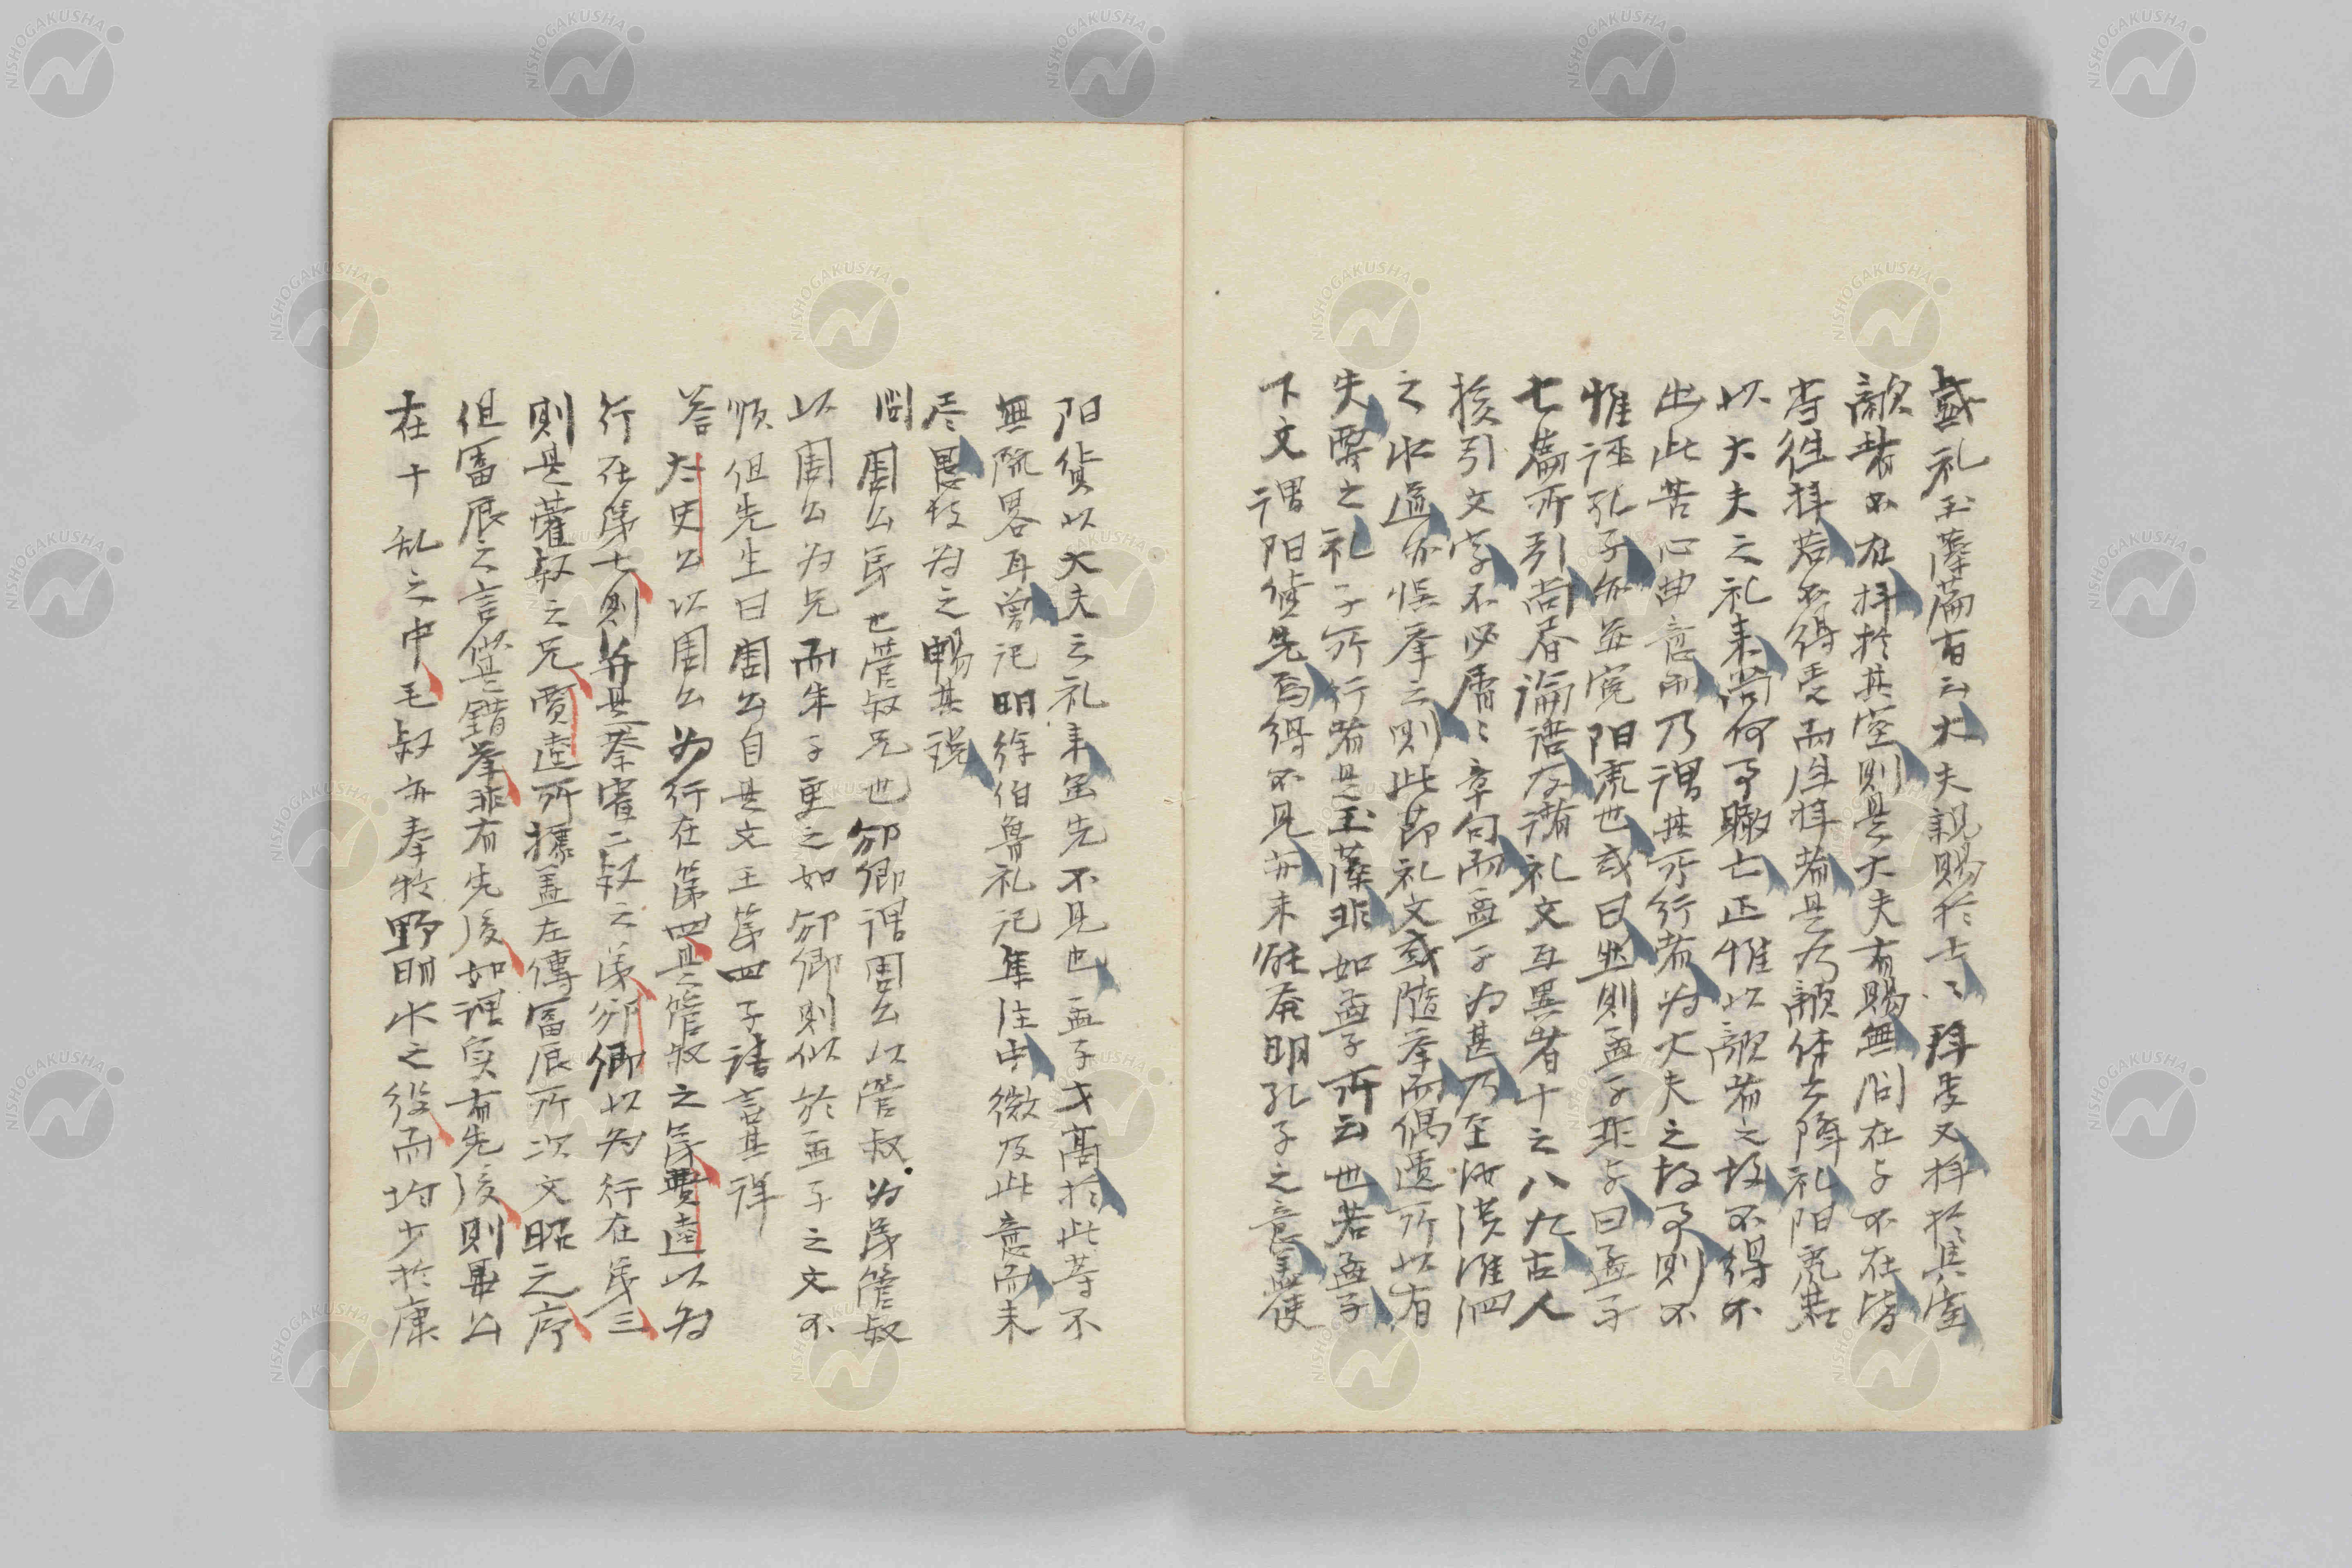 盛礼玉藻篇有云大夫親賜於士〻拜受又拜於其室
敵者不在拜於其室則是大夫有賜無問在与不在皆
当往拜若不得受而往拜者是乃敵体之降礼陽虎若
以大夫之礼来尚何事瞰亡正惟以敵者之故不得不
出此苦心曲意而乃謂其所行者为大夫之故事則不
惟誣孔子亦並寃阳虎也或曰然則孟子非与曰孟子
七篇所引尚書論語及諸礼文互異者十之八九古人
援引文字不必屑〻章句而孟子为甚乃至汝漢淮泗
之水道亦悞举之則此節礼文或隨举而偶遺所以有
失要之礼子所行者是玉藻非如孟子所云也若孟子
下文謂阳貨先焉得不見亦未能发明孔子之意盖使
阳貨以大夫之礼来虽先不見也孟子才高於此等不
無疏畧耳曾記明徐伯魯礼記集注中微及此意而未
尽愚故为之暢其說
問周公弟也管叔兄也邠卿謂周公以管叔为弟管叔
以周公为兄而朱子更之如邠卿則似於孟子之文不
順但先生曰周公自是文王第四子請言其詳
荅太史公以周公为行在第四是管叔之弟賈逵以为
行在第七則并是蔡霍二叔之弟邠卿以为行在弟三
則是管叔之兄賈逵所據盖左傳冨辰所次文昭之序
但冨辰之言似是錯举非有先後如謂实有先後則畢公
在十乱之中毛叔亦奉牧野明水之役而均少於康